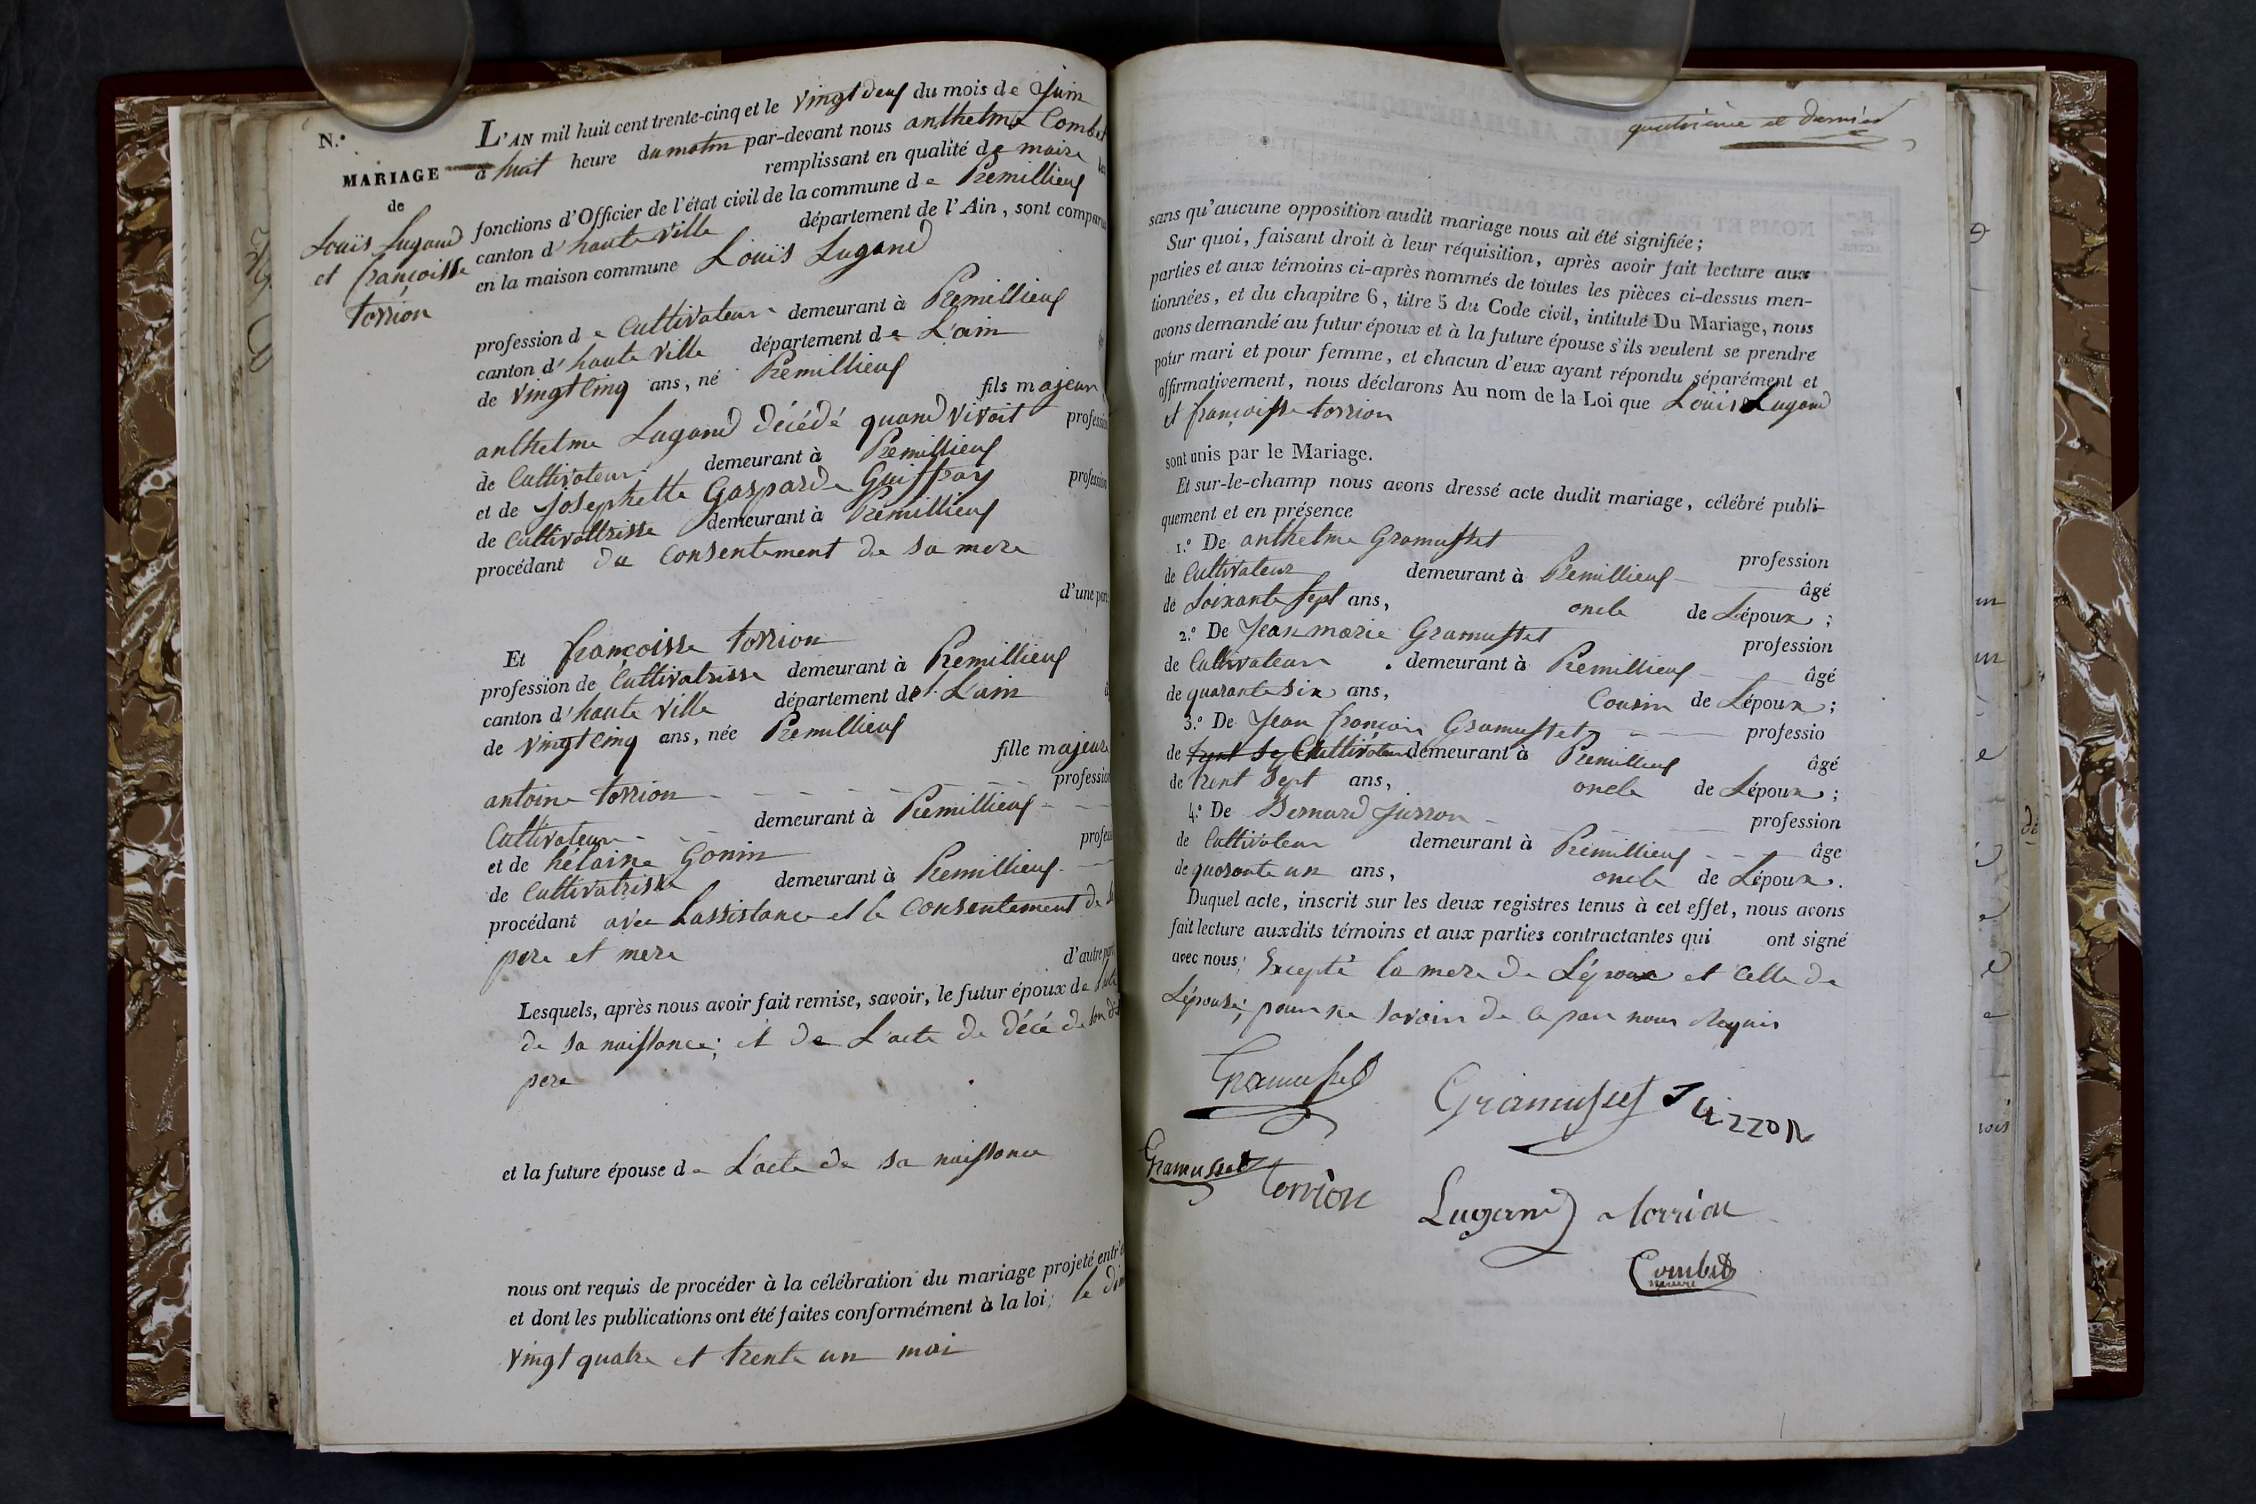 N.°
MARIAGE
de
Louïs Lugand
et françoisse
torrion
L'AN mil huit cent trente-cinq et le vingt deux du mois de Juin
à huit heure du matin par-devant nous anthelme Combet
remplissant en qualité de maire les
fonctions d'Officier de l'état civil de la commune de Premillieux
canton d'haute ville département de l'Ain, sont comparus
en la maison commune Louïs Lugand
profession de Cultivateur demeurant à Premillieux
canton d'haute ville département de L'ain
de vingt cinq ans, né Premillieux
fils majeur
anthelme Lugand décédé quand vivoit profession
de Cultivateur demeurant à Premillieux
et de Josephette Gasparde Guiffray profession
de Cultivattrisse demeurant à Premillieux
procédant du consentement de sa mere
d'une part
Et françoisse torrion
profession de Cultivatrisse demeurant à Premillieux
canton d'haute ville département de L'ain
de vingt cinq ans, née Premillieux
fille majeure
antoine torrion profession
Cultivateur demeurant à Premillieux
et de hélaine Gonin profess
de Cultivatrisse demeurant à Premillieux
procédant avec Lassistance et le consentement de
pere et mere
d'autre part
Lesquels, après nous avoir fait remise, savoir, le futur époux de
de sa naissance; et de L'acte de décé de son dit
pere
et la future épouse de L'acte de sa naissance
nous ont requis de procéder à la célébration du mariage projeté entr'
et dont les publications ont été faites conformément à la loi; le
vingt quatre et trente un mai
quatrième et dernier
sans qu'aucune opposition audit mariage nous ait été signifiée;
Sur quoi, faisant droit à leur réquisition, après avoir fait lecture aux
parties et aux témoins ci-après nommés de toutes les pièces ci-dessus men-
tionnées, et du chapitre 6, titre 5 du Code civil, intitulé Du Mariage, nous
avons demandé au futur époux et à la future épouse s'ils veulent se prendre
pour mari et pour femme, et chacun d'eux ayant répondu séparément et
affirmativement, nous déclarons Au nom de la Loi que Louïs Lugand
et françoisse torrion
sont unis par le Mariage.
Et sur-le-champ nous avons dressé acte dudit mariage, célébré publi-
quement et en présence
1.° De anthelme Gramusset
profession
de Cultivateur demeurant à Premillieux âgé
de soixante sept ans, oncle de Lépoux;
2.° De Jean marie Gramusset profession
de Cultivateur demeurant à Premillieux âgé
de quarante six ans, Cousin de Lépoux;
3.° De Jean françois Gramusset professio
de Cultivateur demeurant à Premillieux âgé
de trent sept ans, oncle de Lépoux;
4.° De Bernard Juzzon profession
de Cultivateur demeurant à Premillieux âge
de quarante un ans, oncle de Lépoux.
Duquel acte, inscrit sur les deux registres tenus à cet effet, nous avons
fait lecture auxdits témoins et aux parties contractantes qui ont signé
avec nous; Excepté la mere de Lépoux et celle de
Lépouse; pour ne savoir de ce par nous Requis
Gramusset
Gramusset
Gramusset torrion
Lugand torrion
Combet
maire